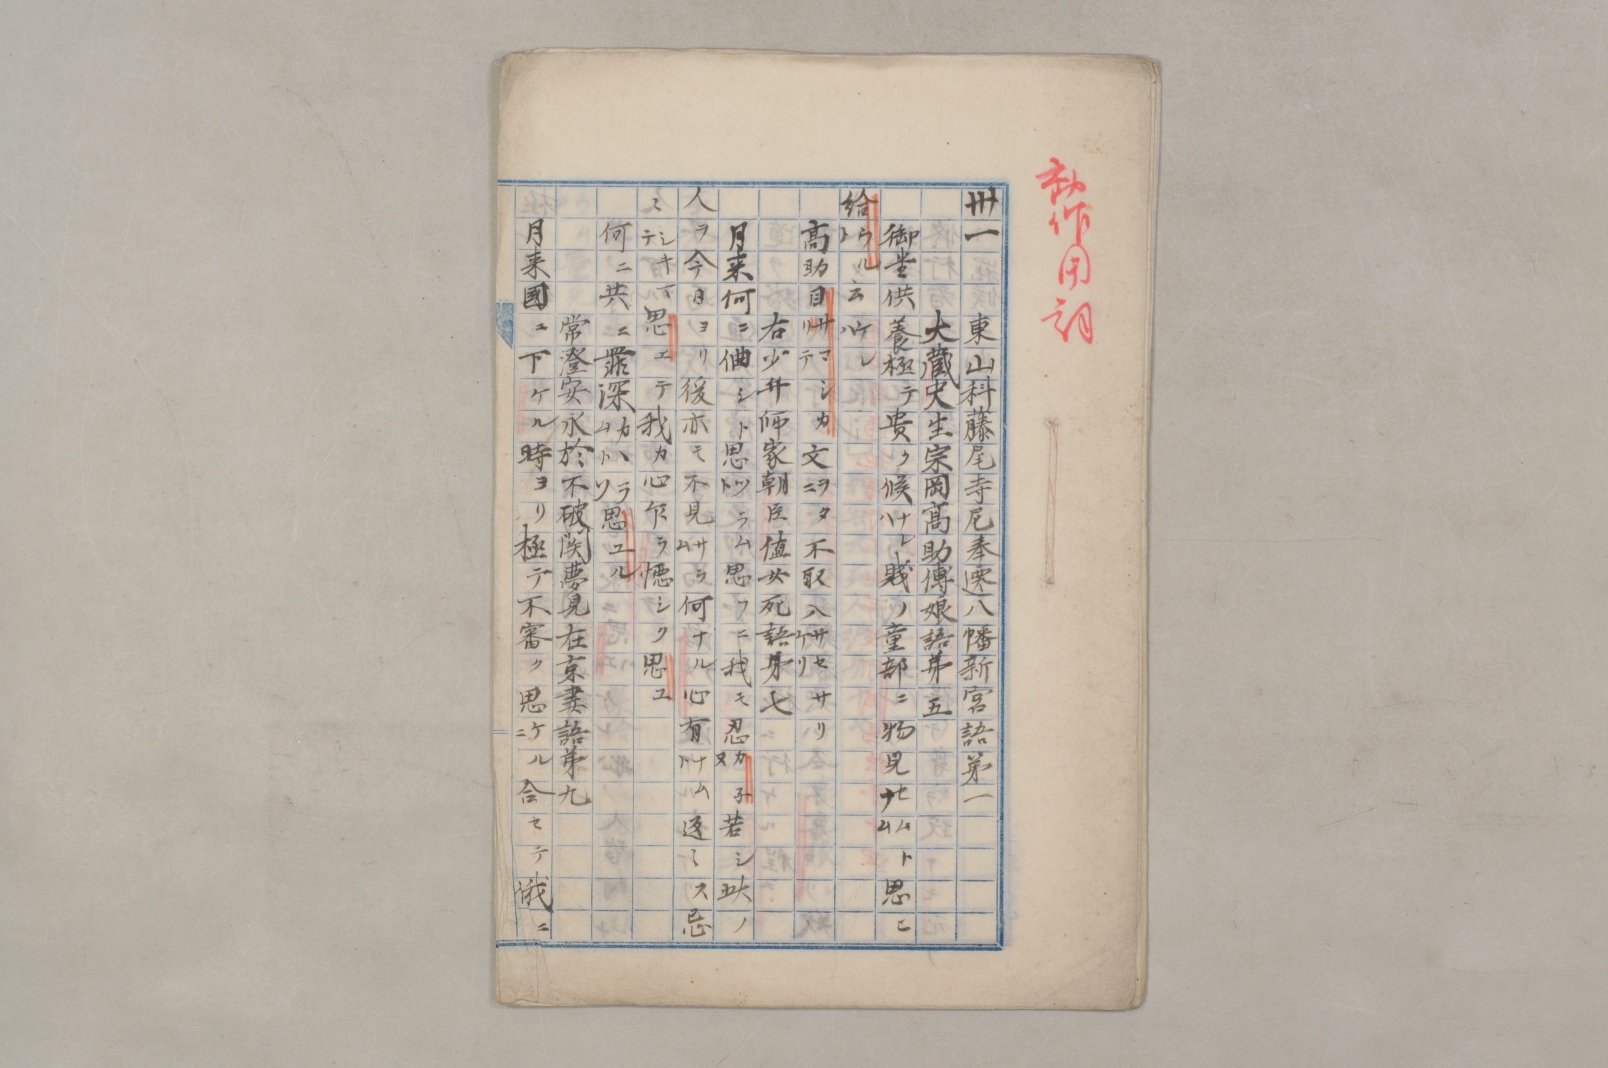 卅一 東山科藤尾寺尼奉遷八幡新宮語第一
大蔵史生宗岡高助傅娘語第五
御堂供養極テ貴ク候ナレハ賤ノ童部ニ物見セムナムト思ヒ
給ウルト云ケレハ
高助目サマシカリテ文ヲタニ不取入サセサリケリ
右少弁師家朝臣値女死語第七
月来何ニ佃シト思ツラムト思フニ我モ忍カヌ子若シ此ノ
人ヲ今日ヨリ後亦モ不見サラム何ナル心有ナムト返ミス忌
ミシキマテ思エテ我カ心乍ラ怪シク思ユ
何ニ共ニ罪深カラムハトソ思ユル
常澄安永於不破関夢見在京妻語第九
月来國ニ下ケル時ヨリ極テ不審ク思ケルニ合セテ俄ニ